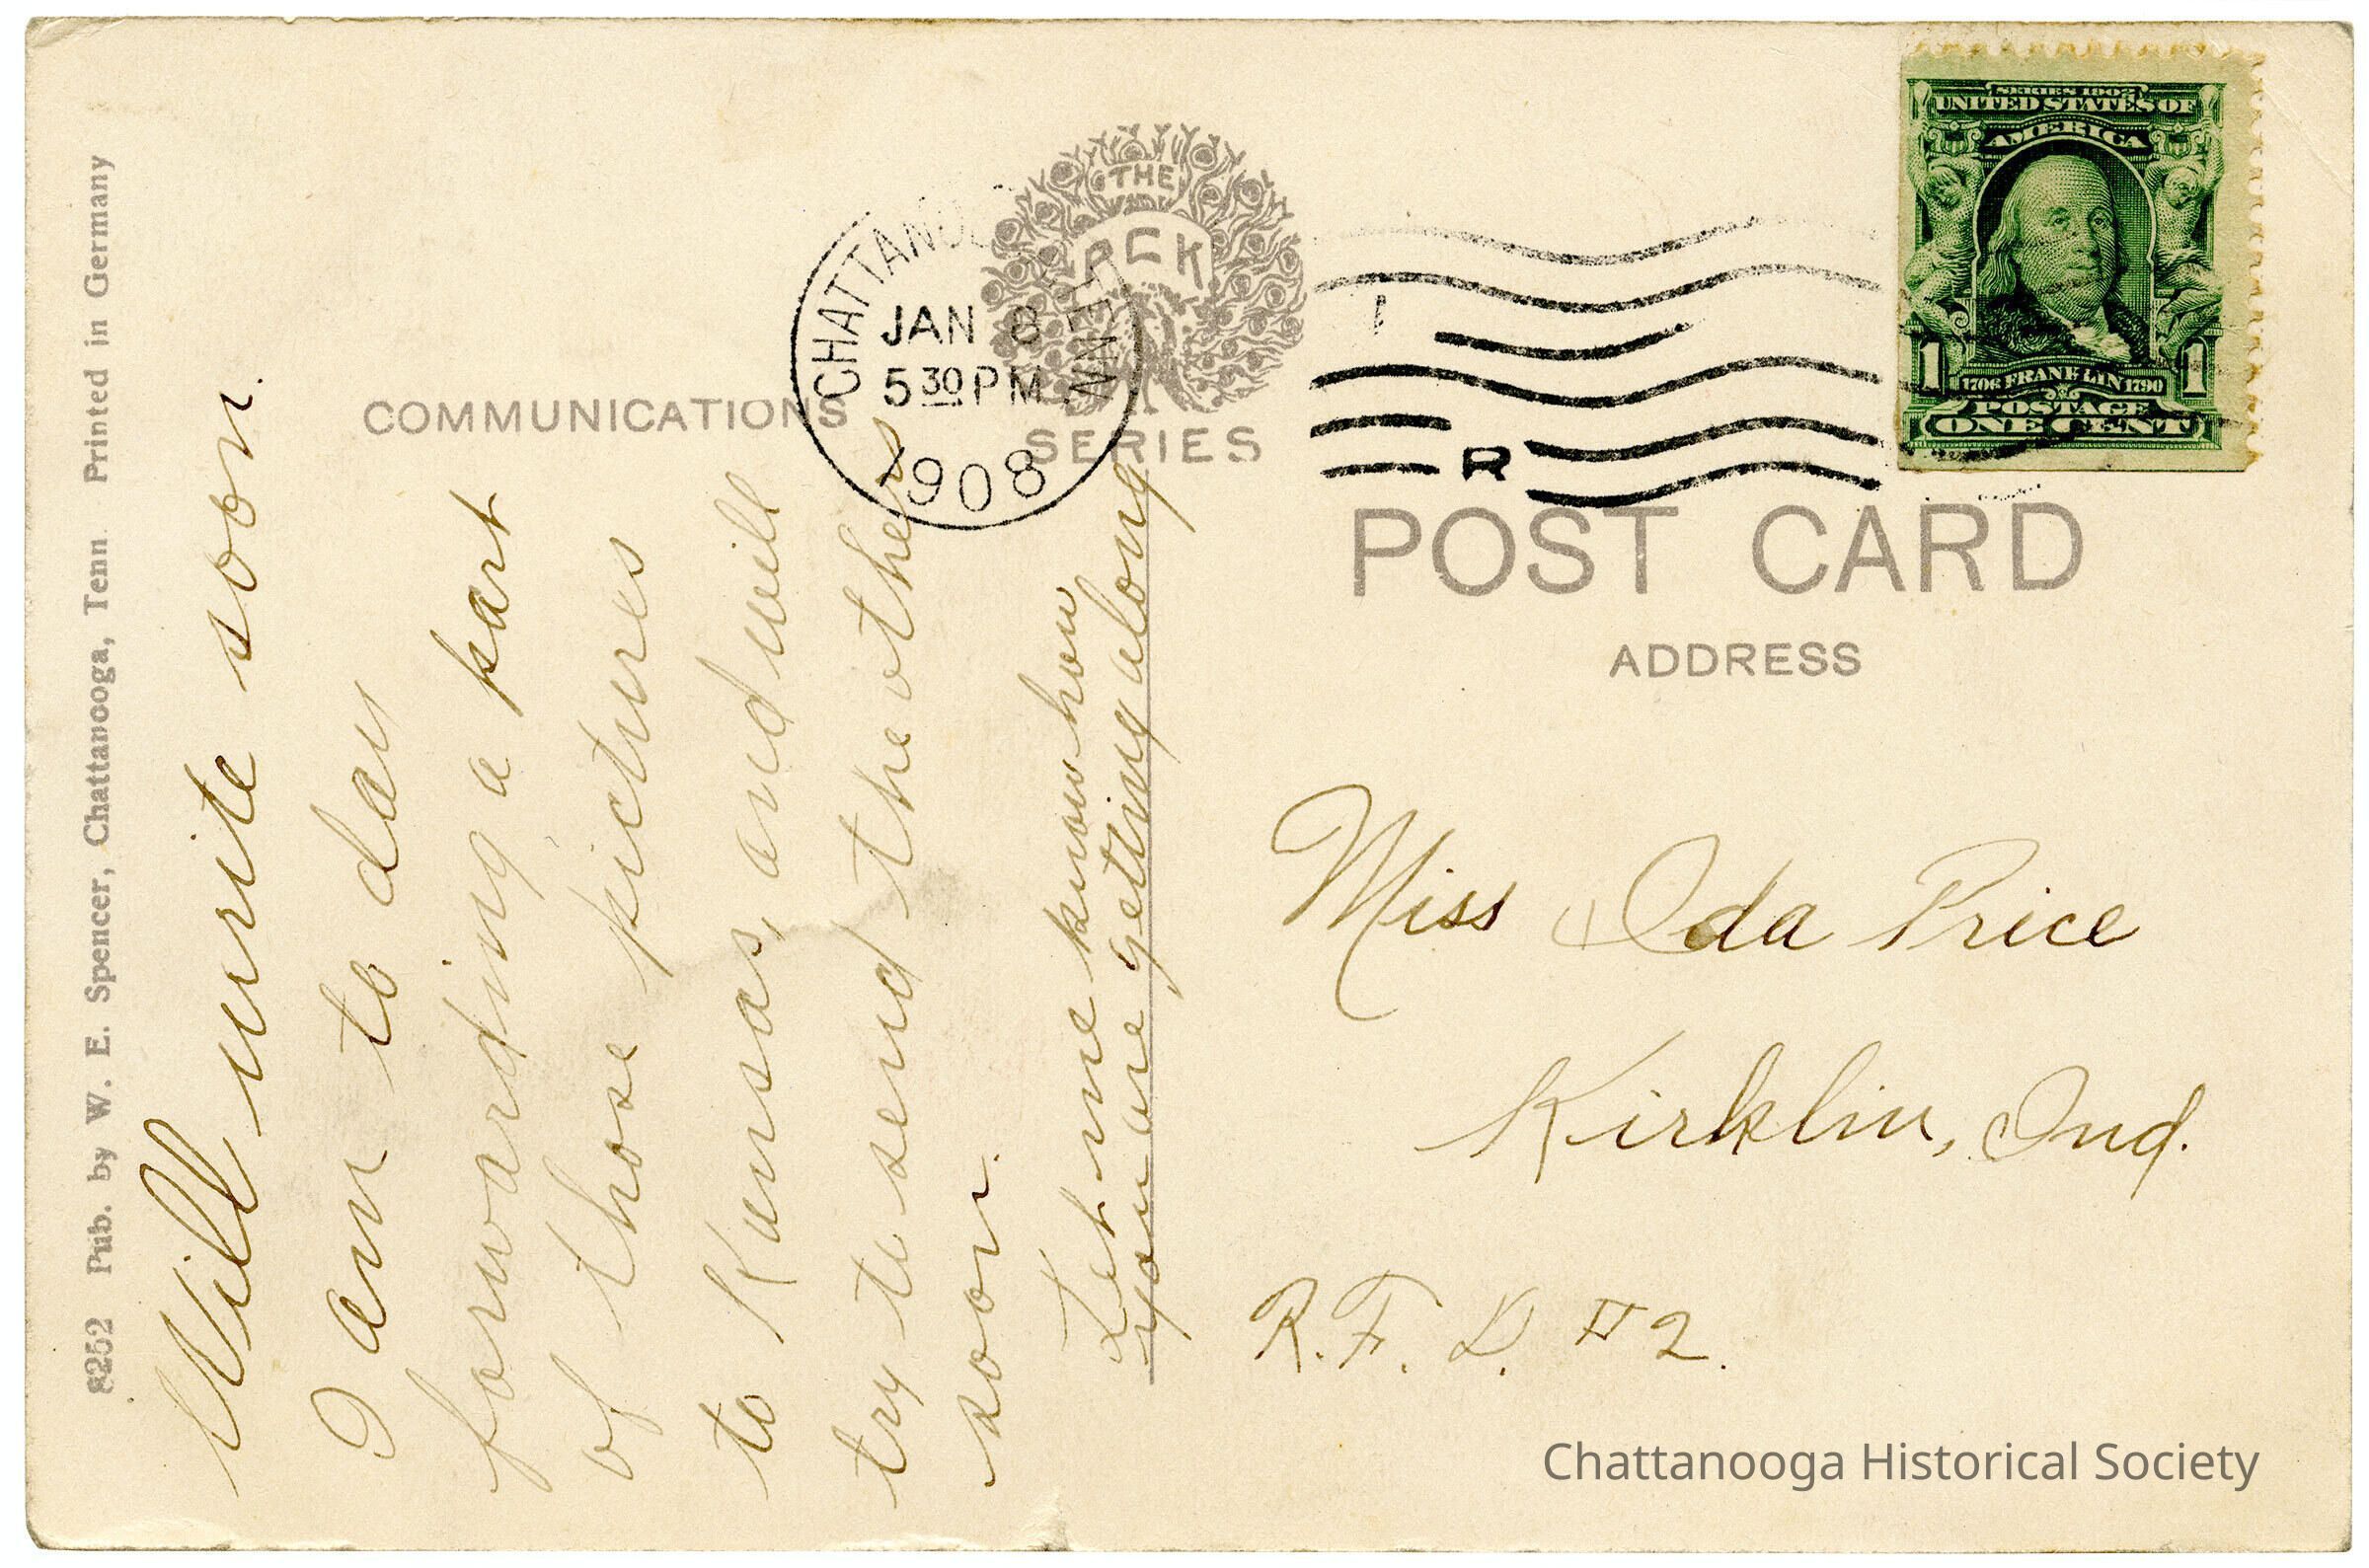 8252 Pub. by W. E. Spencer, Chattanooga, Tenn. Printed in Germany
COMMUNICATIONS
Will write soon.
I am to day
forwarding a part
of those pictures
to Kansas, and will
try to send the others
soon.
Let me know how
you are getting along
CHATTANOOGA TENN.
JAN 8
5 30 PM
1908
THE
PCK
SERIES
R
SERIES 1902
UNITED STATES OF
AMERICA
1 1
1706 FRANKLIN 1790
POSTAGE
ONE CENT
POST CARD
ADDRESS
Miss Ida Price
Kirklin, Ind.
R. F. D. #2.
Chattanooga Historical Society